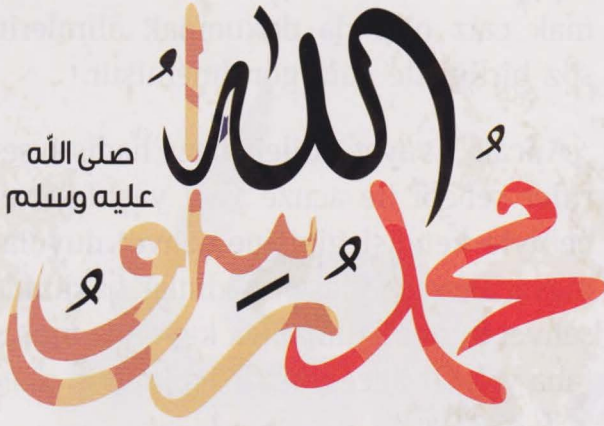 محمدٌ رسِولُ
اللهُ
صلى الله
عليه وسلم